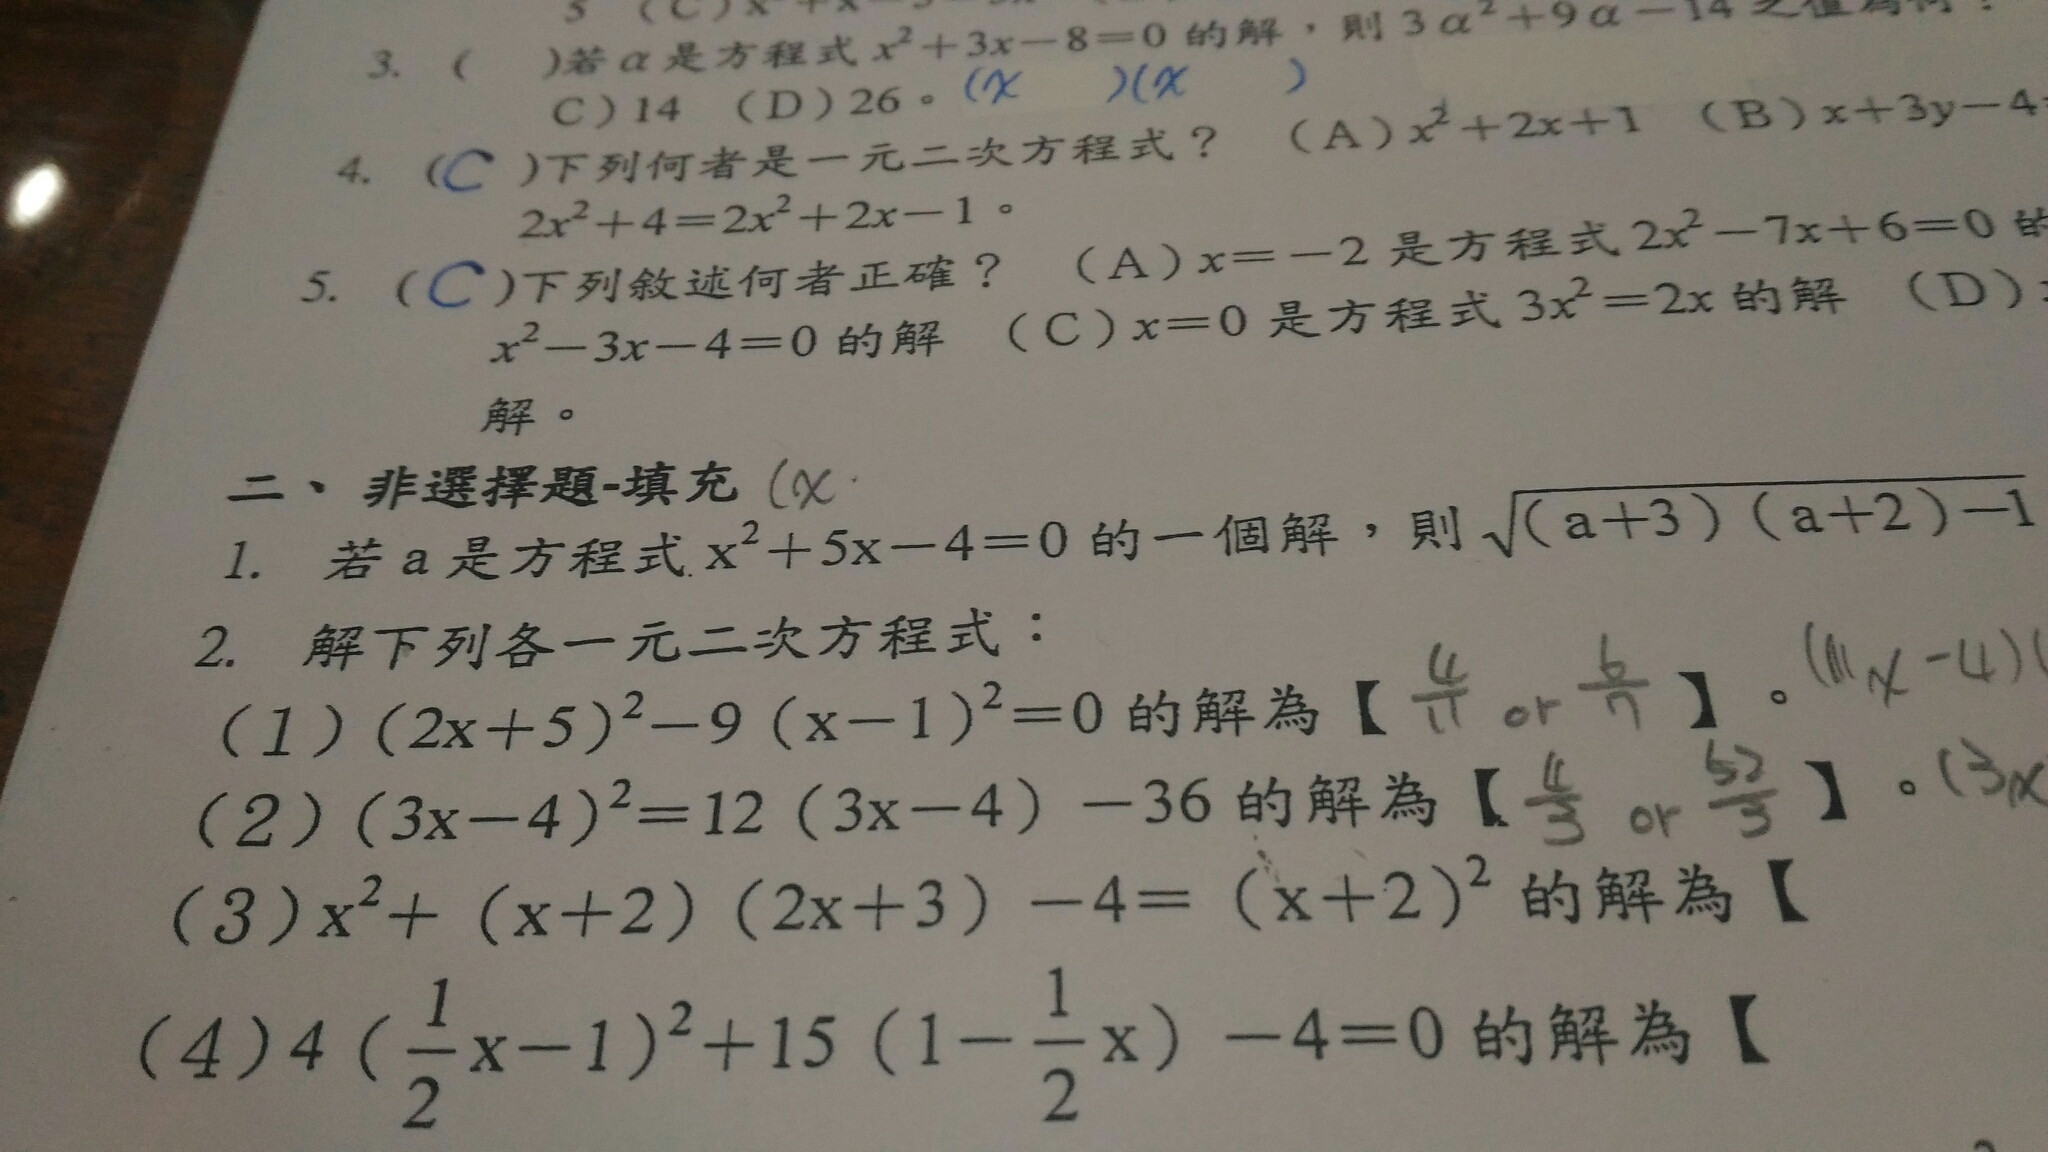 3. ( )若α是方程式 x²+3x−8=0 的解，則 3α²+9α−14
C）14 （D）26。(x )(x )
4. (C )下列何者是一元二次方程式？ （A）x²+2x+1 （B）x+3y−4
2x²+4=2x²+2x−1。
5. (C)下列敘述何者正確？ （A）x=−2 是方程式 2x²−7x+6=0 的
x²−3x−4=0 的解 （C）x=0 是方程式 3x²=2x 的解 （D）
解。
二、非選擇題-填充 (x
1. 若 a 是方程式 x²+5x−4=0 的一個解，則 √(a+3)(a+2)−1
2. 解下列各一元二次方程式：
（1）(2x+5)²−9(x−1)²=0 的解為【 4/11 or 6/7 】。 x-4)(
（2）(3x−4)²=12(3x−4)−36 的解為【 or 52/3 】。(3x
（3）x²+(x+2)(2x+3)−4=(x+2)² 的解為【
（4）4(1/2x−1)²+15(1−1/2x)−4=0 的解為【